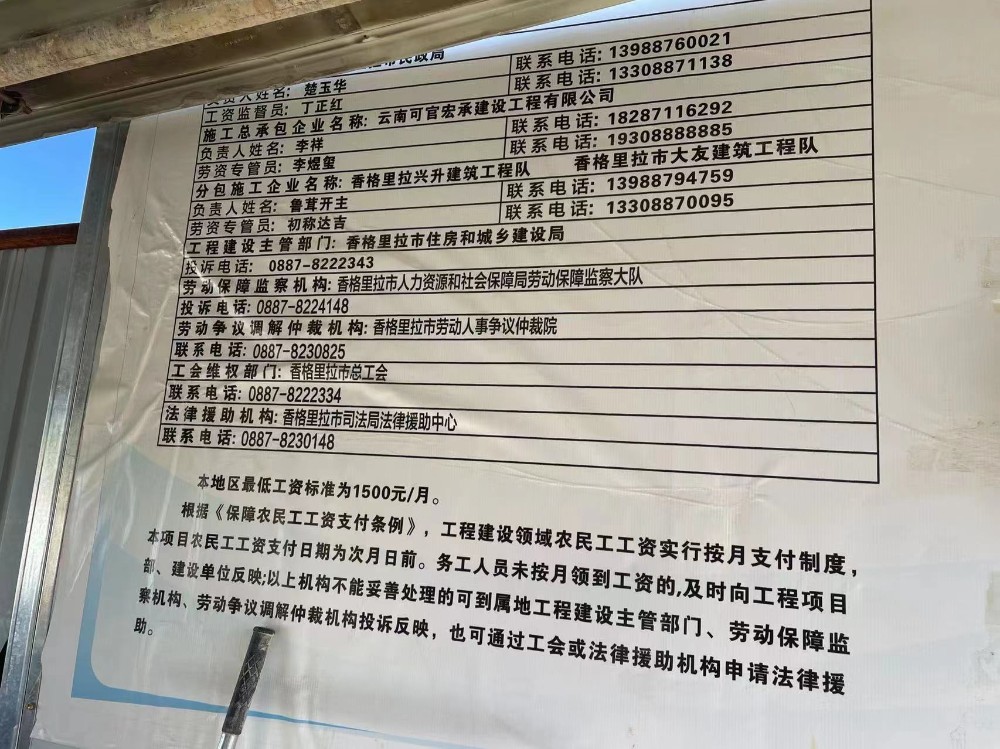 市民政局
负责人姓名: 楚玉华 联系电话: 13988760021
工资监督员: 丁正红 联系电话: 13308871138
施工总承包企业名称: 云南可官宏承建设工程有限公司
负责人姓名: 李祥 联系电话: 18287116292
劳资专管员: 李煜玺 联系电话: 19308888885
分包施工企业名称: 香格里拉兴升建筑工程队 香格里拉市大友建筑工程队
负责人姓名: 鲁茸开主 联系电话: 13988794759
劳资专管员: 初称达吉 联系电话: 13308870095
工程建设主管部门: 香格里拉市住房和城乡建设局
投诉电话: 0887-8222343
劳动保障监察机构: 香格里拉市人力资源和社会保障局劳动保障监察大队
投诉电话: 0887-8224148
劳动争议调解仲裁机构: 香格里拉市劳动人事争议仲裁院
联系电话: 0887-8230825
工会维权部门: 香格里拉市总工会
联系电话: 0887-8222334
法律援助机构: 香格里拉市司法局法律援助中心
联系电话: 0887-8230148
本地区最低工资标准为1500元/月。
根据《保障农民工工资支付条例》，工程建设领域农民工工资实行按月支付制度，
本项目农民工工资支付日期为次月日前。务工人员未按月领到工资的,及时向工程项目
部、建设单位反映;以上机构不能妥善处理的可到属地工程建设主管部门、劳动保障监
察机构、劳动争议调解仲裁机构投诉反映，也可通过工会或法律援助机构申请法律援
助。